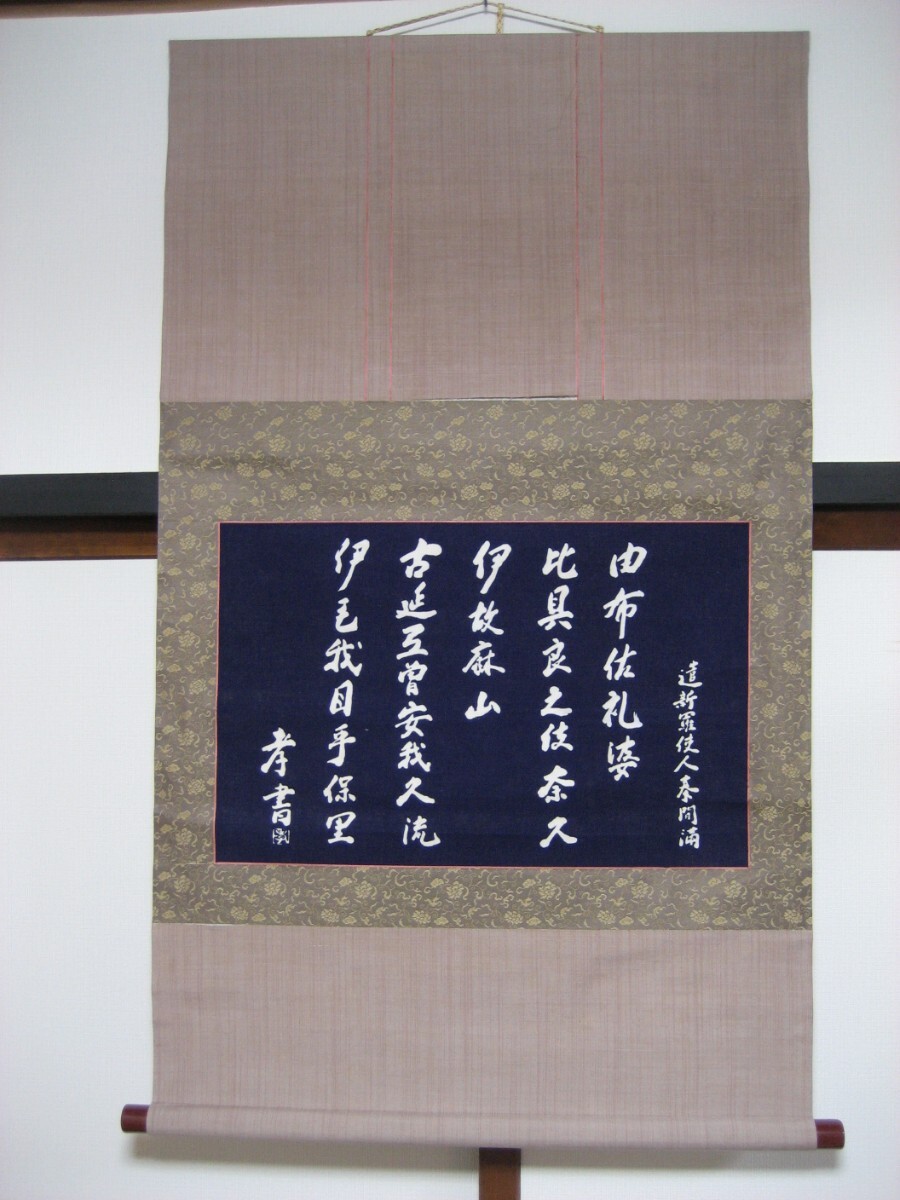 遣新羅使人秦間満
由布佐礼婆
比具良之伎奈久
伊故麻山
古延弖曽安我久流
伊毛我目乎保里
孝書